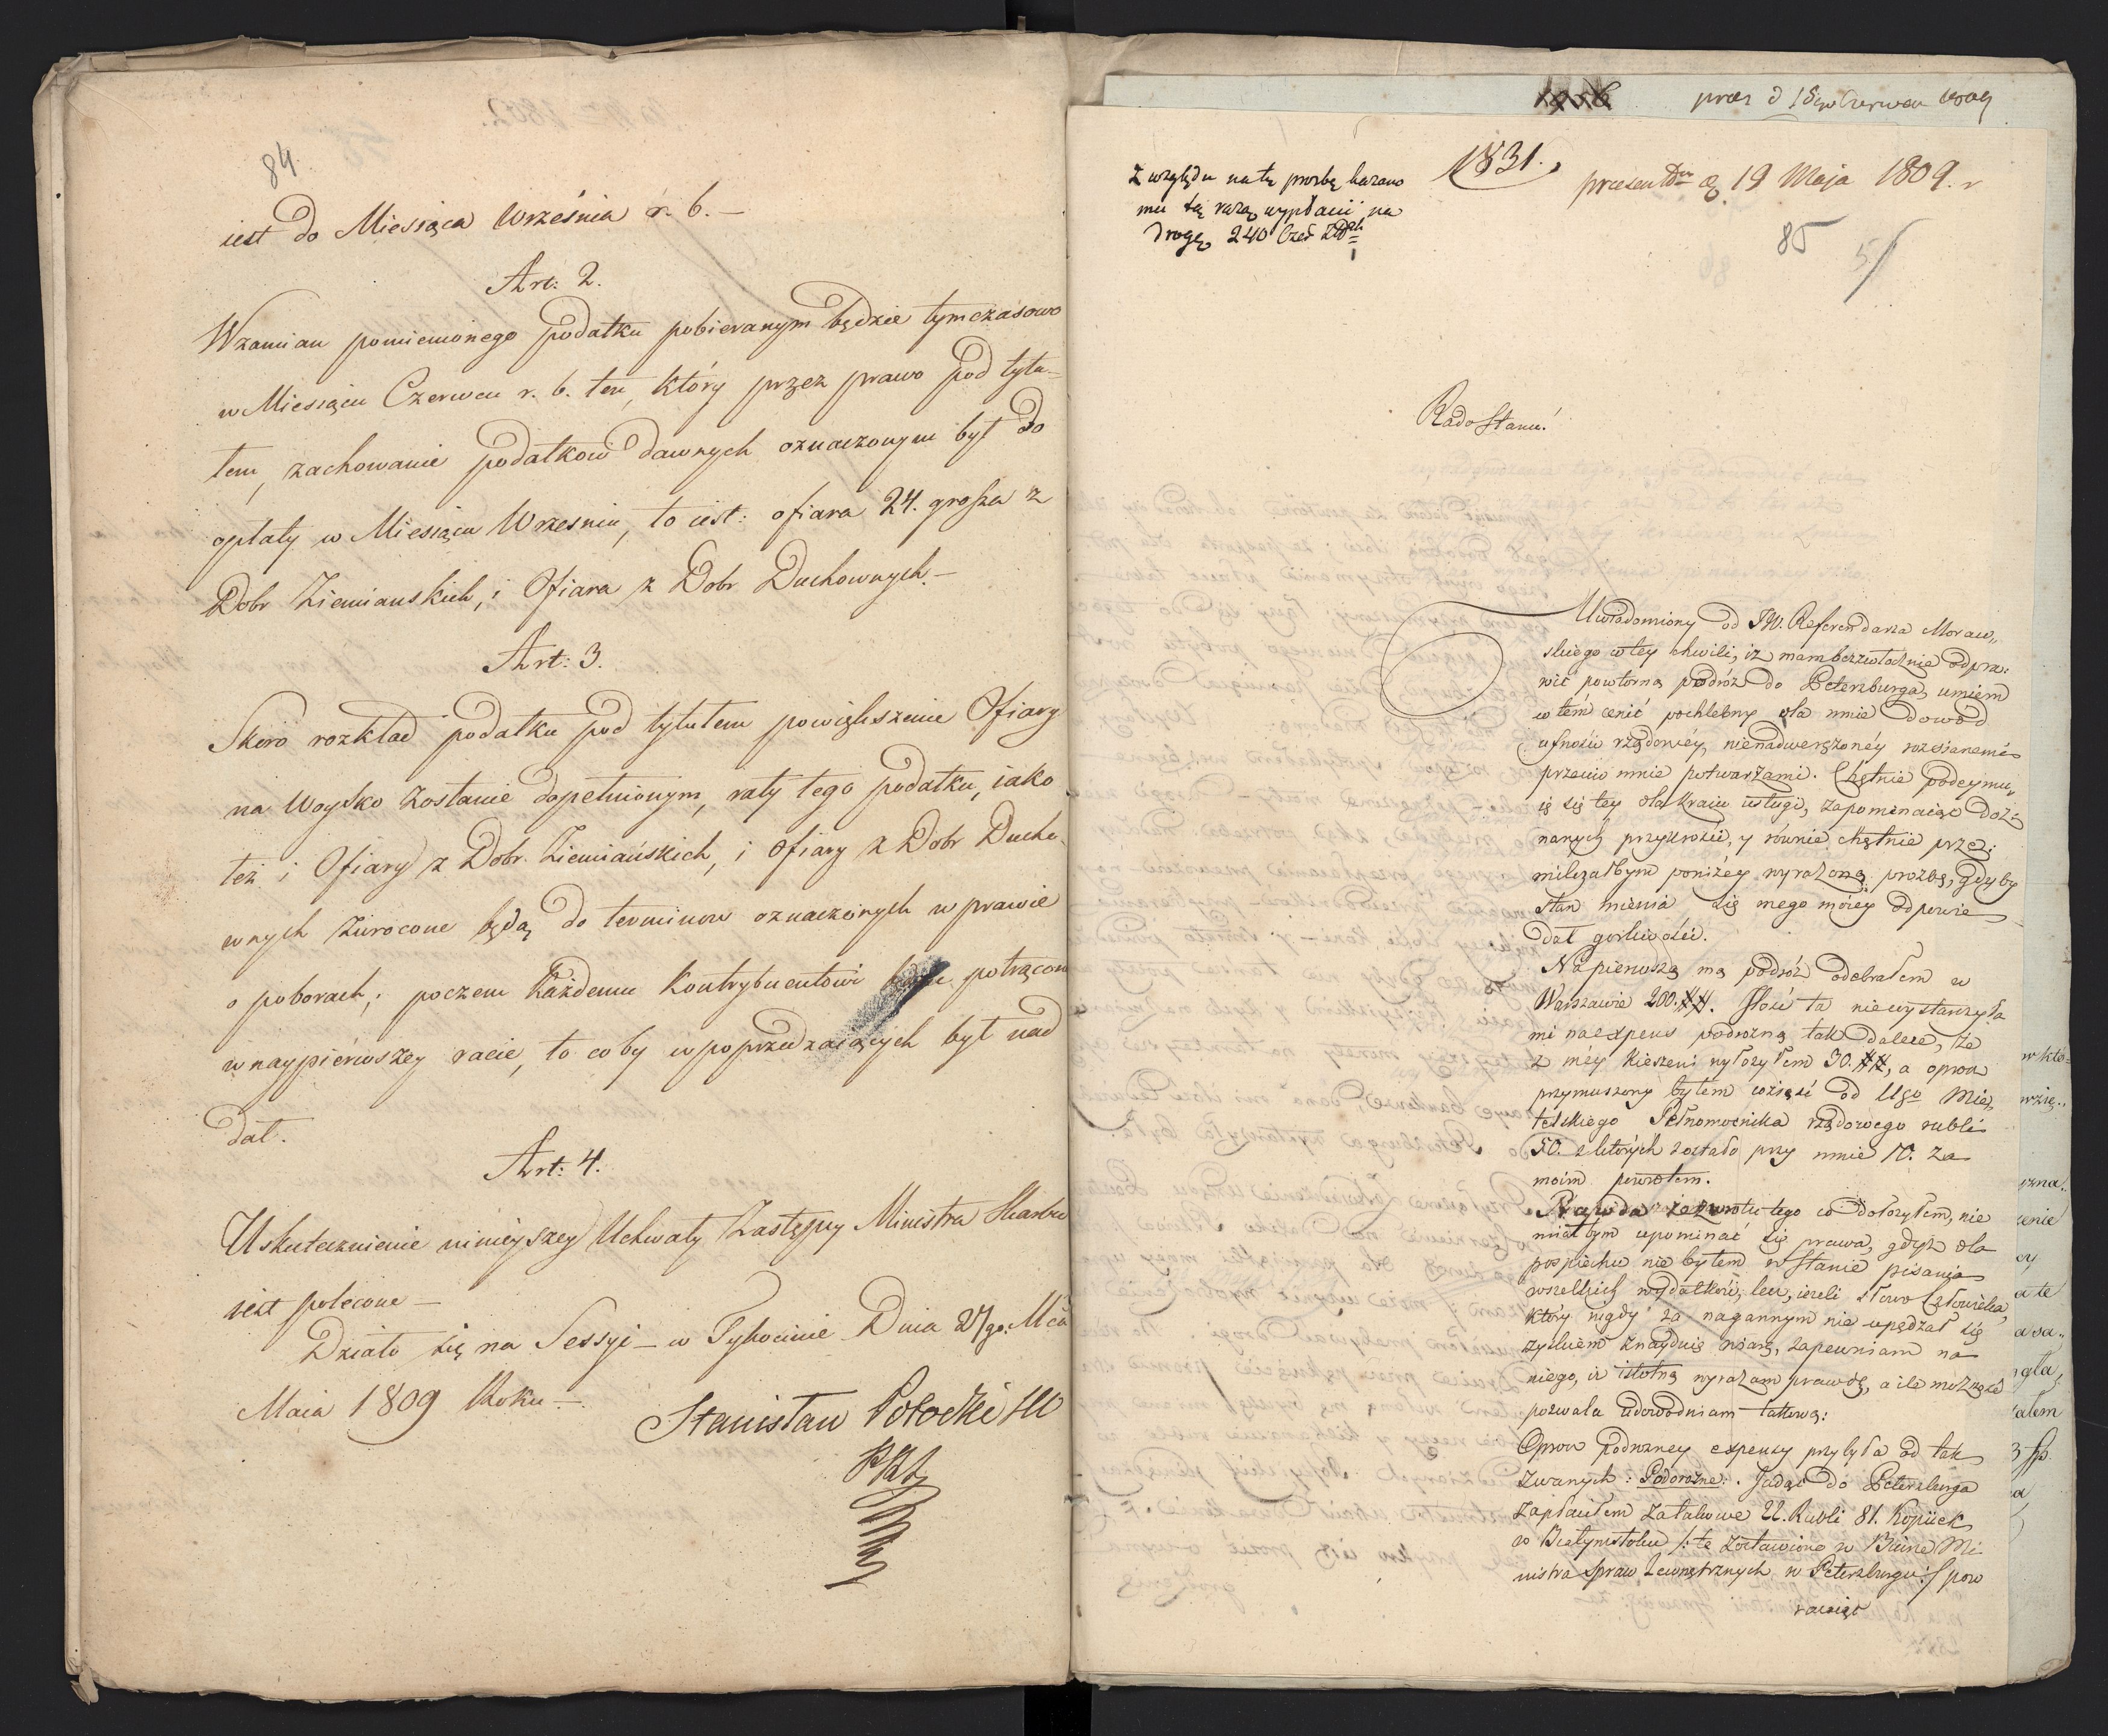 84.
iest do Miesiąca Września r. b. —
Art: 2.
Wzamian pomienionego podatku pobieranym będzie tymczasowo
w Miesiącu Czerwcu r. b. ten, który przez prawo pod tytu-
łem, zachowanie podatkow dawnych oznaczonym był do
opłaty w Miesiącu Wrzesniu, to iest: ofiara 24. grosza z
Dobr Ziemianskich, i Ofiara z Dobr Duchownych. —
Art: 3.
Skoro rozkład podatku pod tytułem powiększenie Ofiary
na Woysko zostanie dopełnionym, raty tego podatku, iako
też i Ofiary z Dobr Ziemiańskich, i Ofiary z Dobr Ducho-
wnych zwrocone będą do terminow oznaczonych w prawie
o poborach; poczem każdemu Kontrybuentowi potrącon
w naypierwszey racie, to coby w poprzedzaiących był nad
dał.
Art: 4.
Uskutecznienie ninieyszey Uchwały Zastępcy Ministra Skarbu
iest polecone —
Działo się na Sessyi — w Tykocinie Dnia 27go: Mca
Maia 1809 Roku —
Stanisław Potocki
prez d 18go Czerwca 1809
Z względu na tę prozbę kazano
mu tą razą wypłacić na
drogę 240 Czer Zł
1831.
praesent d. 19 Maja 1809. r
85
51
Rado Stanu!
Uwiadomiony od JW. Referendarza Moraw„
skiego w tey chwili, iż mam bezzwłocznie odpra:
wić powtorną podróż do Petersburga, umiem
w tém cenić pochlebny dla mnie dowód
ufności rządowéy, nienadwerężonéy rozsianemi
przeciw mnie potwarzami. Chętnie podeymu„
ię się tey dla kraiu usługi, zapominaiąc doz:
nanych przykrości, y równie chętnie prze:
milczałbym poniżey wyrażoną prozbę, gdyby
stan mienia się mego mógł odpowie
dać gorliwości.
Na pierwszą mą podróż odebrałem w
Warszawie 200.##. Ilość ta niewystarczyła
mi na expens podrożną tak dalece, że
z mey kieszeni wyłożyłem 30.##, a oprocz
przymuszony byłem wziąść od Ugo Mie„
telskiego Pełnomocnika rządowego rubli
50. z których zostało przy mnie 10. za
moim powrotem.
Prawda, że zwrotu tego co dołożyłem, nie
miałbym upominać się prawa, gdyż dla
pospiechu nie byłem w stanie pisania
wszelkich wydatków, lecz, ieżeli słowo Człowieka,
który nigdy za nagannym nie upędzał się
zyskiem znayduie wiarę, zapewniam na
niego, iż istotną wyrażam prawdę, a ile możność
pozwala udowodniam takową:
Oprocz podrożney expensy przybyła od tak
zwanych: Podorożne:. Jadąc do Petersburga
zapłaciłem za takowe 22. Rubli 81. Kopiiek
w Białymstoku /: te zostawiono w Biurze Mi-
nistra Spraw Zewnętrznych w Petersburgu :/ pow
racaiąc